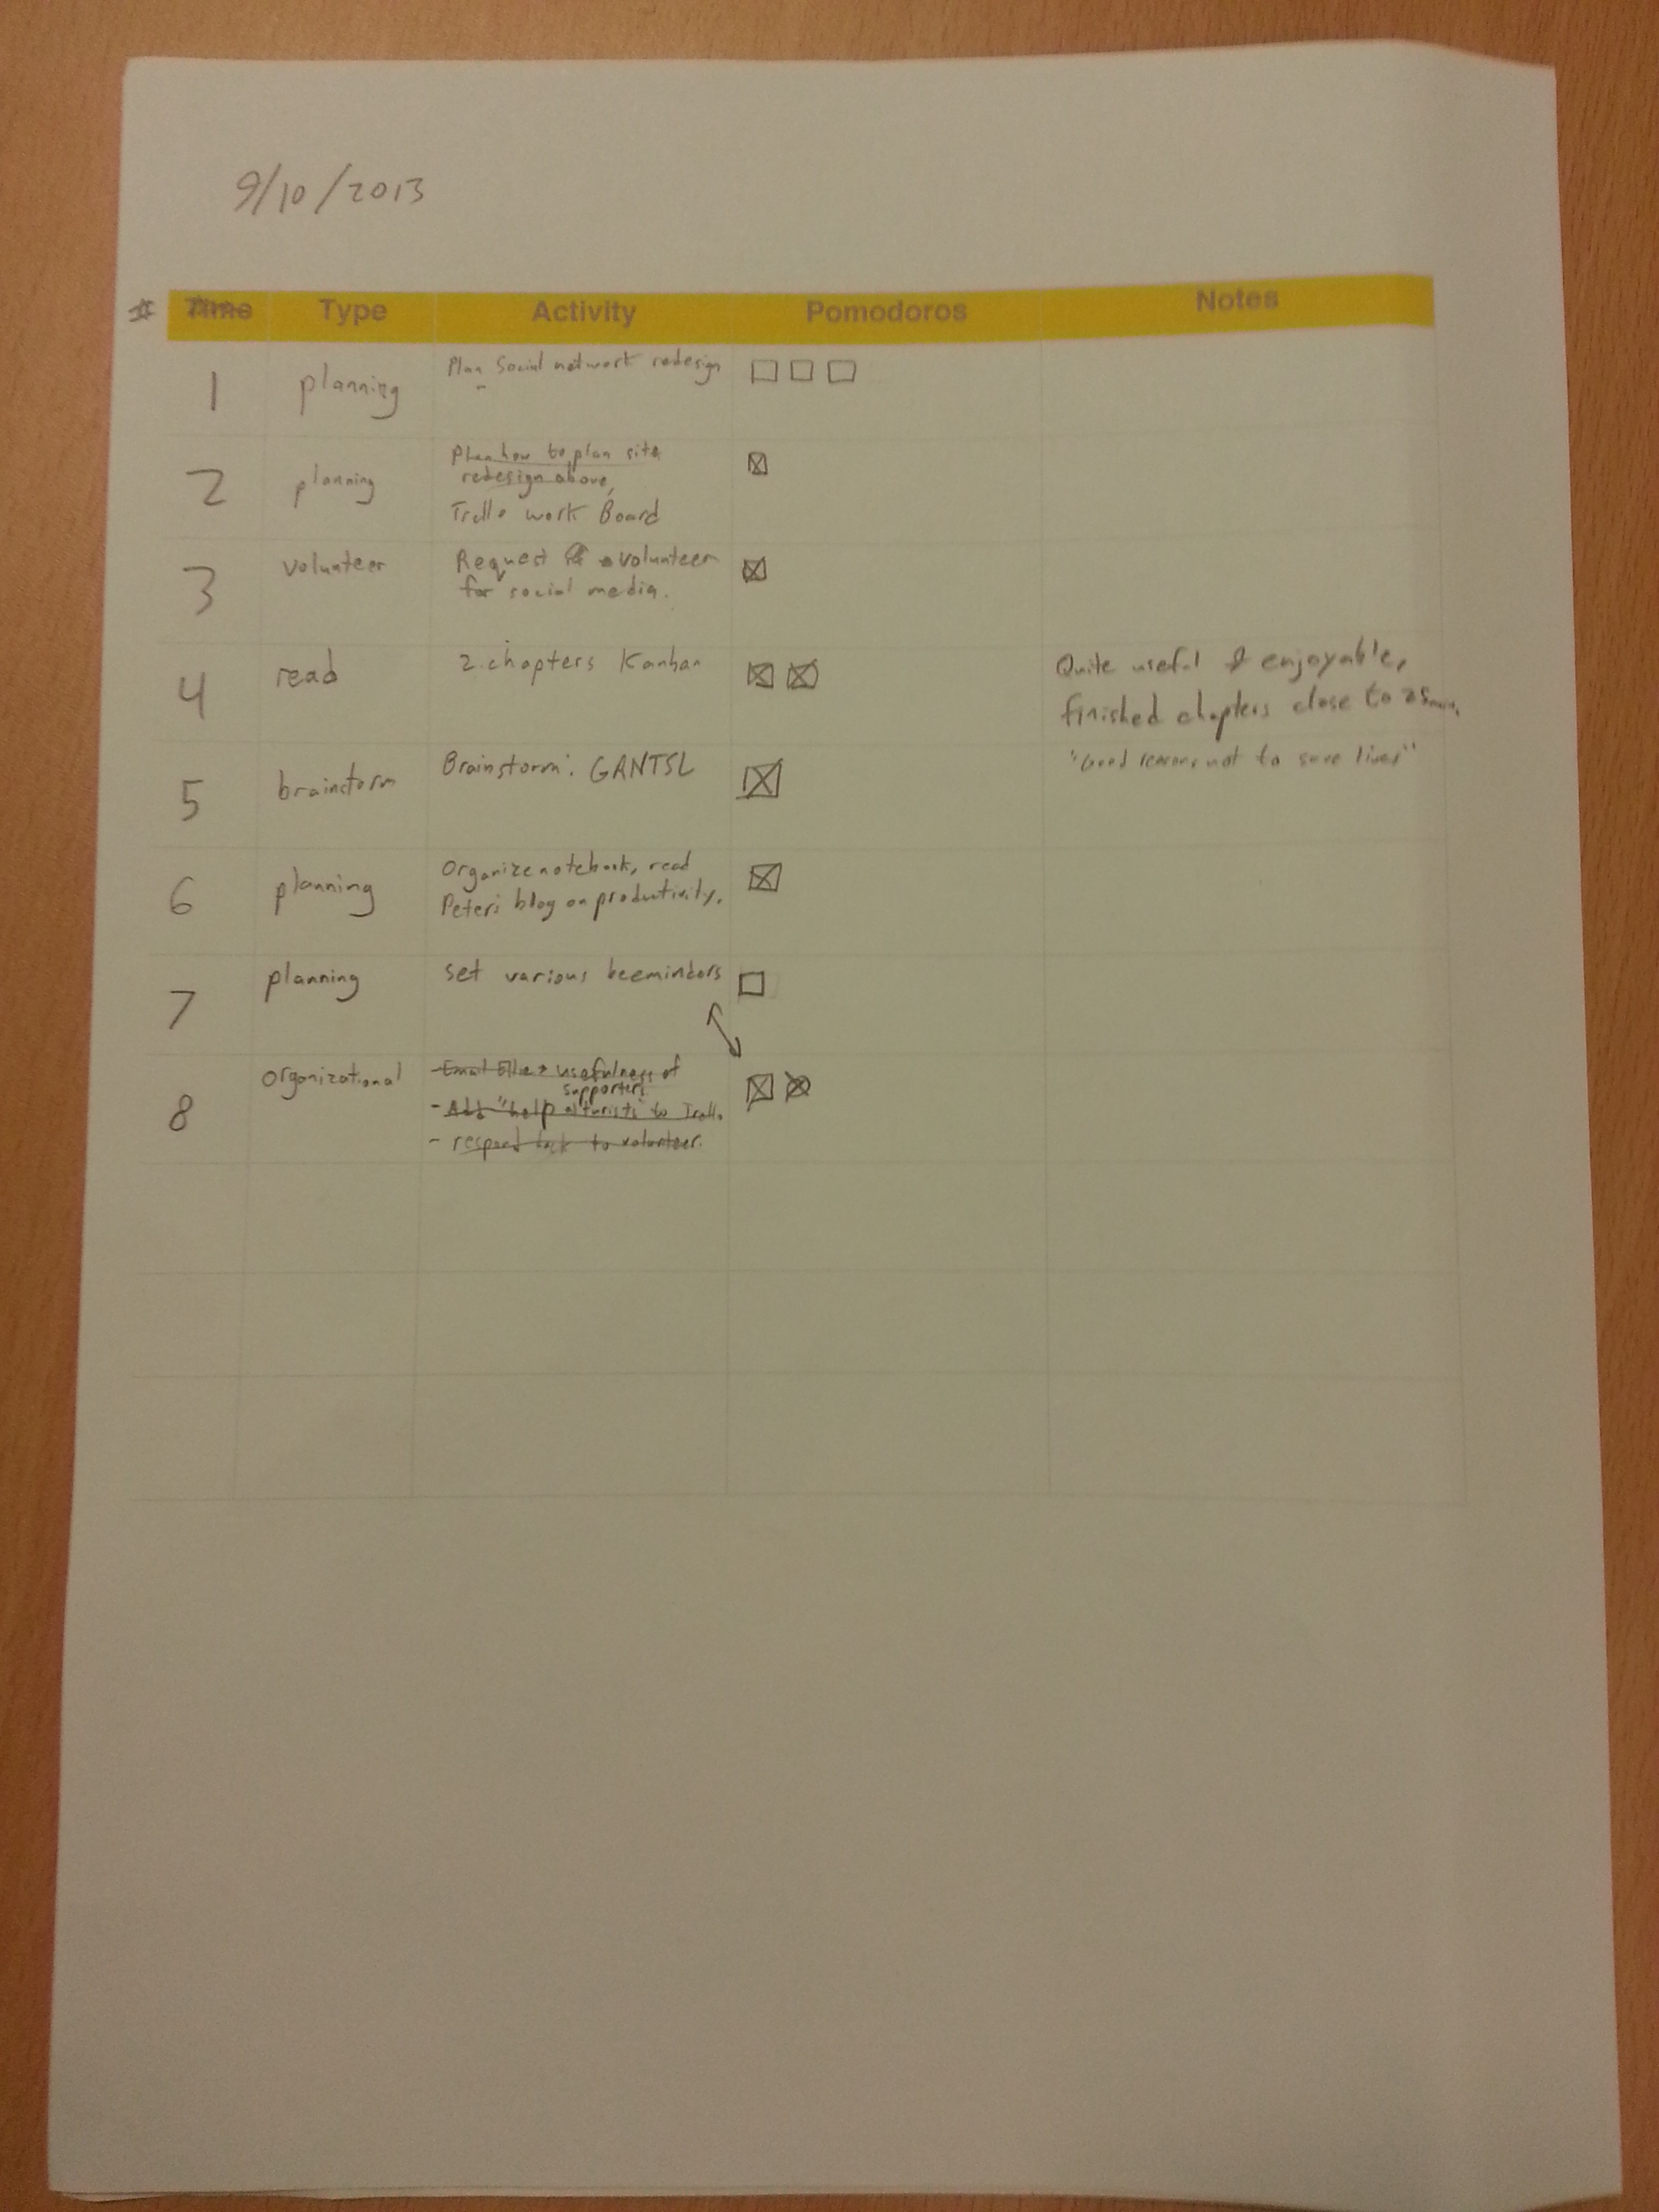 9/10/2013
# Time Type Activity Pomodoros Notes
1 planning Plan Social network redesign
2 planning Plan how to plan site
redesign above,
Trello work Board
3 volunteer Request volunteer
for social media.
4 read 2 chapters Kanban Quite useful & enjoyable,
finished chapters close to 25min.
5 brainstorm Brainstorm: GANTSL "Good reasons not to save lives"
6 planning Organize notebook, read
Peter's blog on productivity.
7 planning set various beeminders
8 organizational - Email usefulness of
supporters
- Add "help alturists" to Trello
- respond back to volunteer.